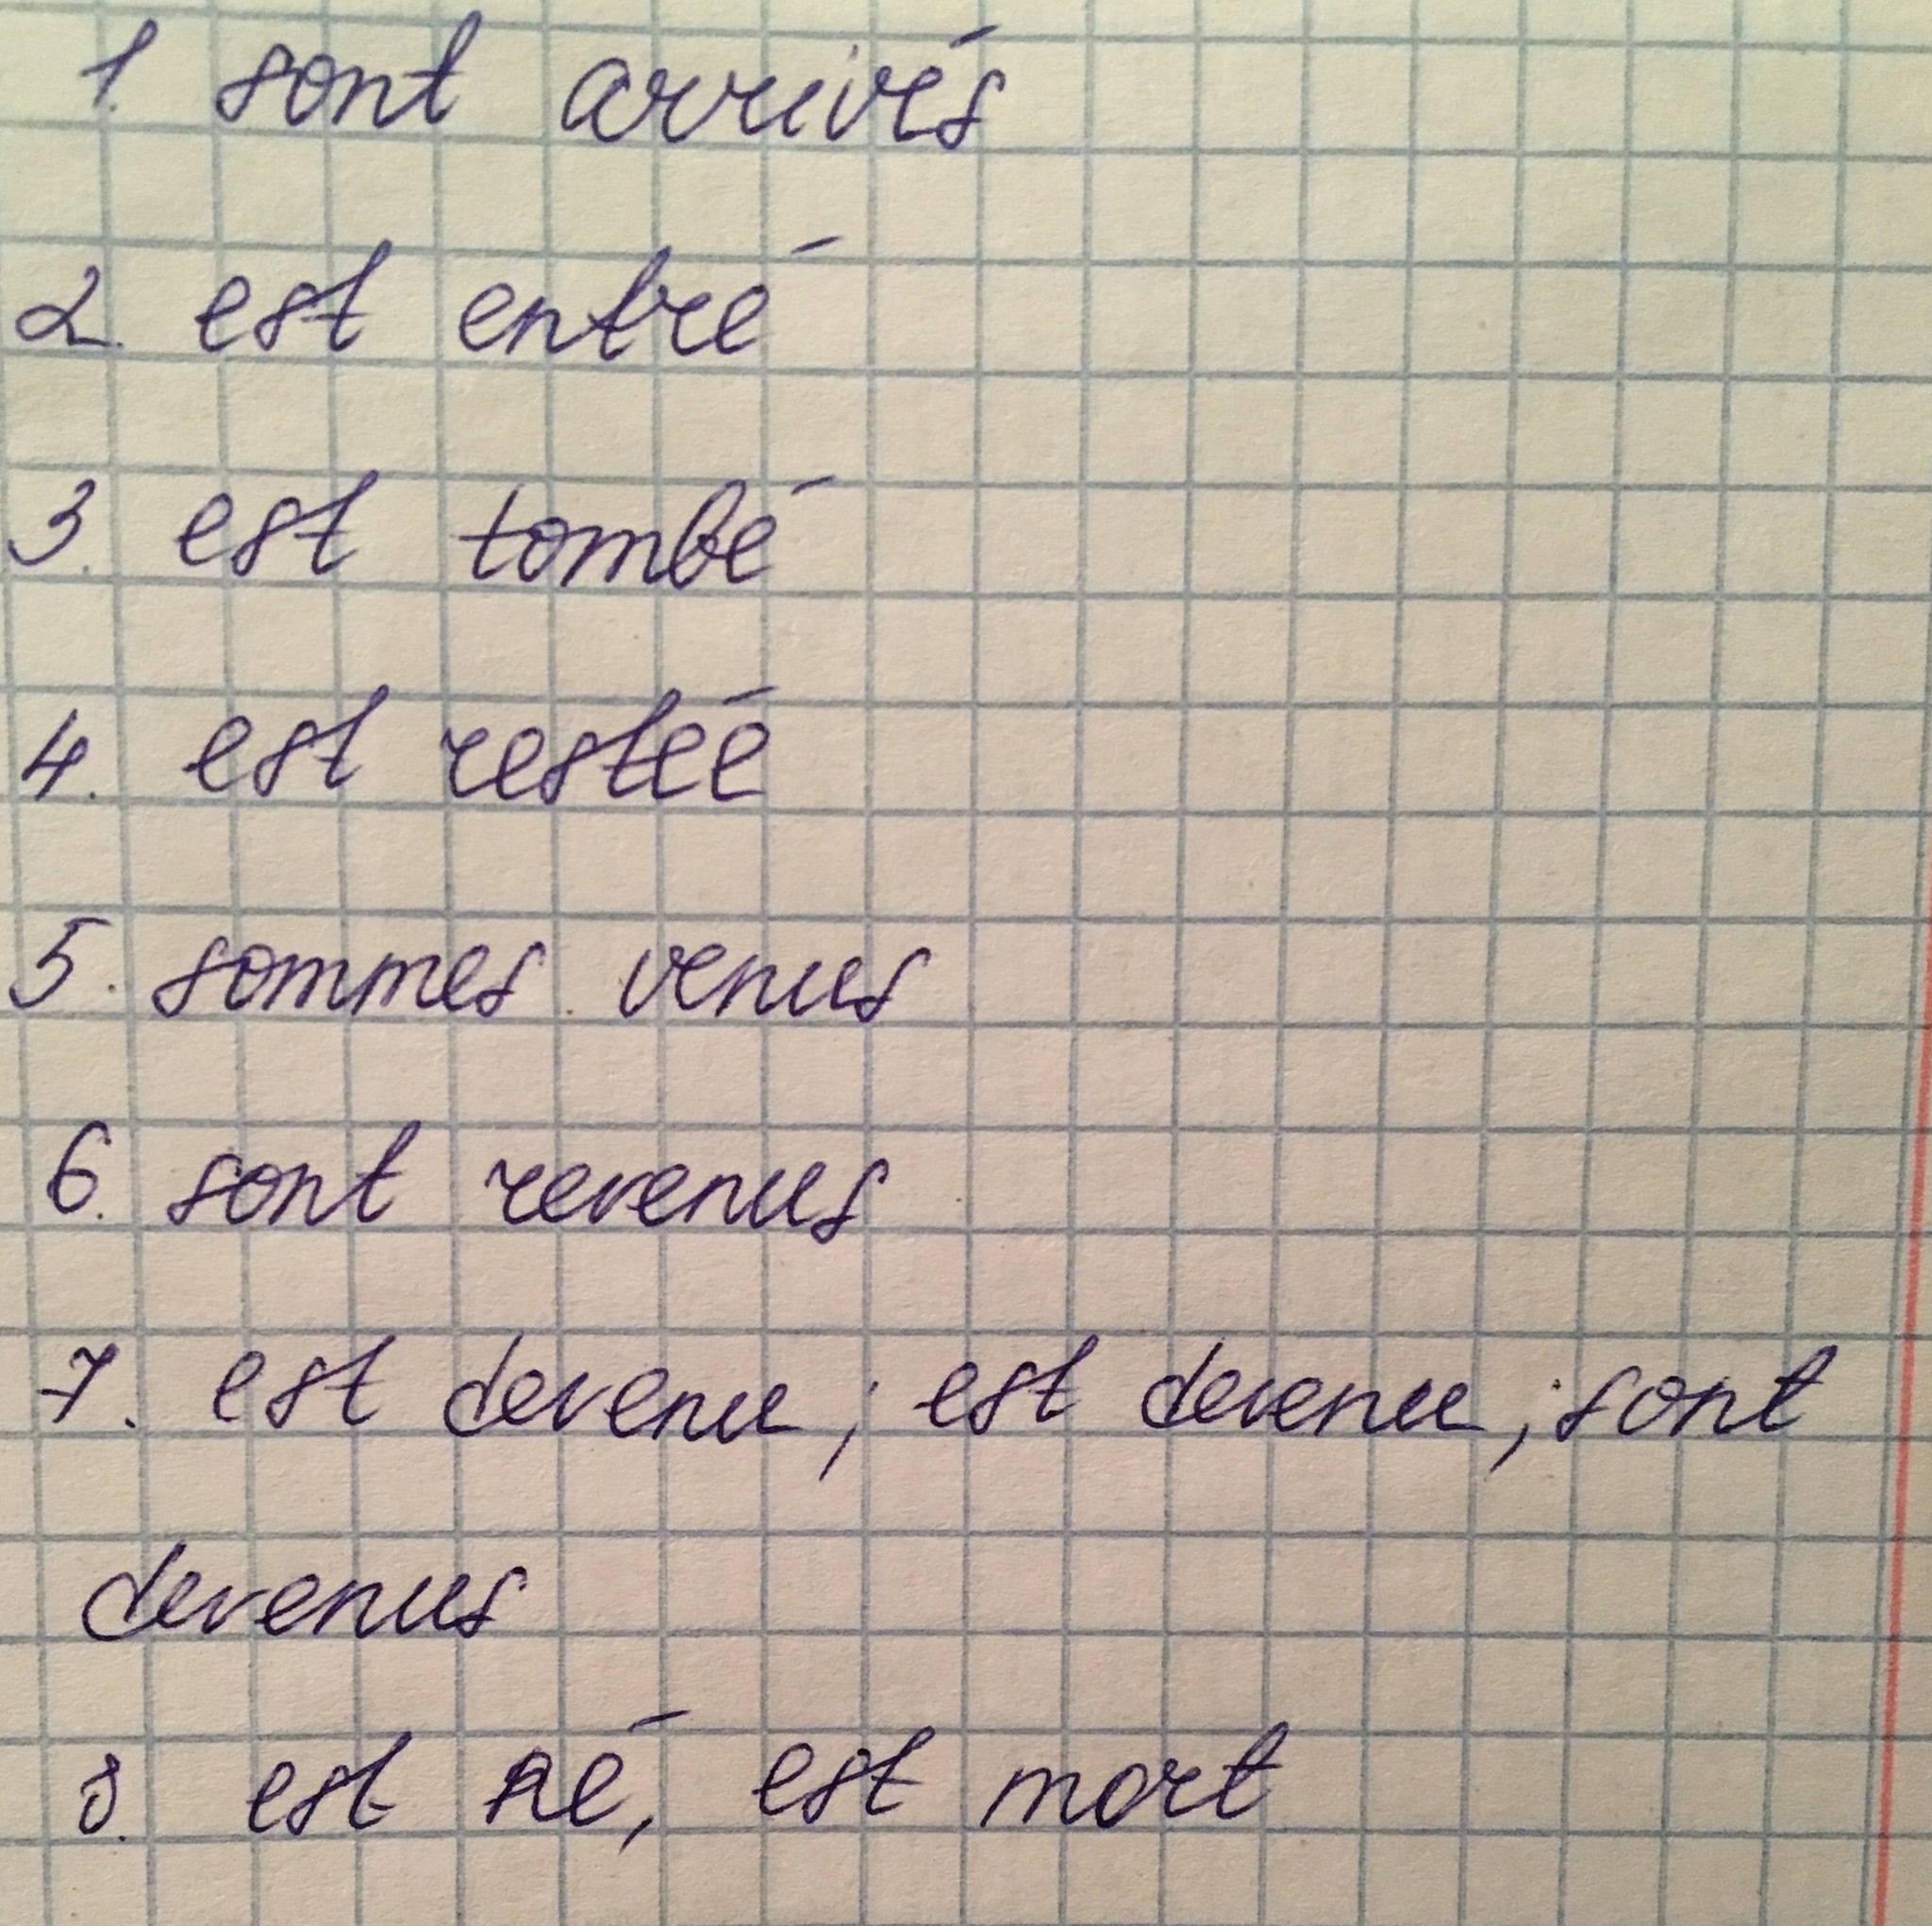 1. sont arrivés
2. est entré
3. est tombé
4. est restée
5. sommes venus
6. sont revenus
7. est devenu; est devenu; sont
devenus
8. est né, est mort